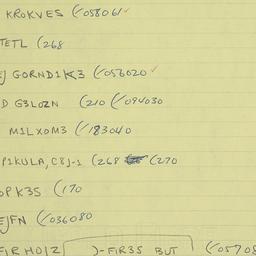 KROKVES (/058061✓
TETL (268
EJ GORND1K3 (/056020✓
D G3LOZN (210 (/094030
M1LXOM3 (/183040
P1KULA, C8J-1 (268 (270
OPK3S (170
EJFN (/036080
FIRHO1Z )-FIR3S BUT (/05708